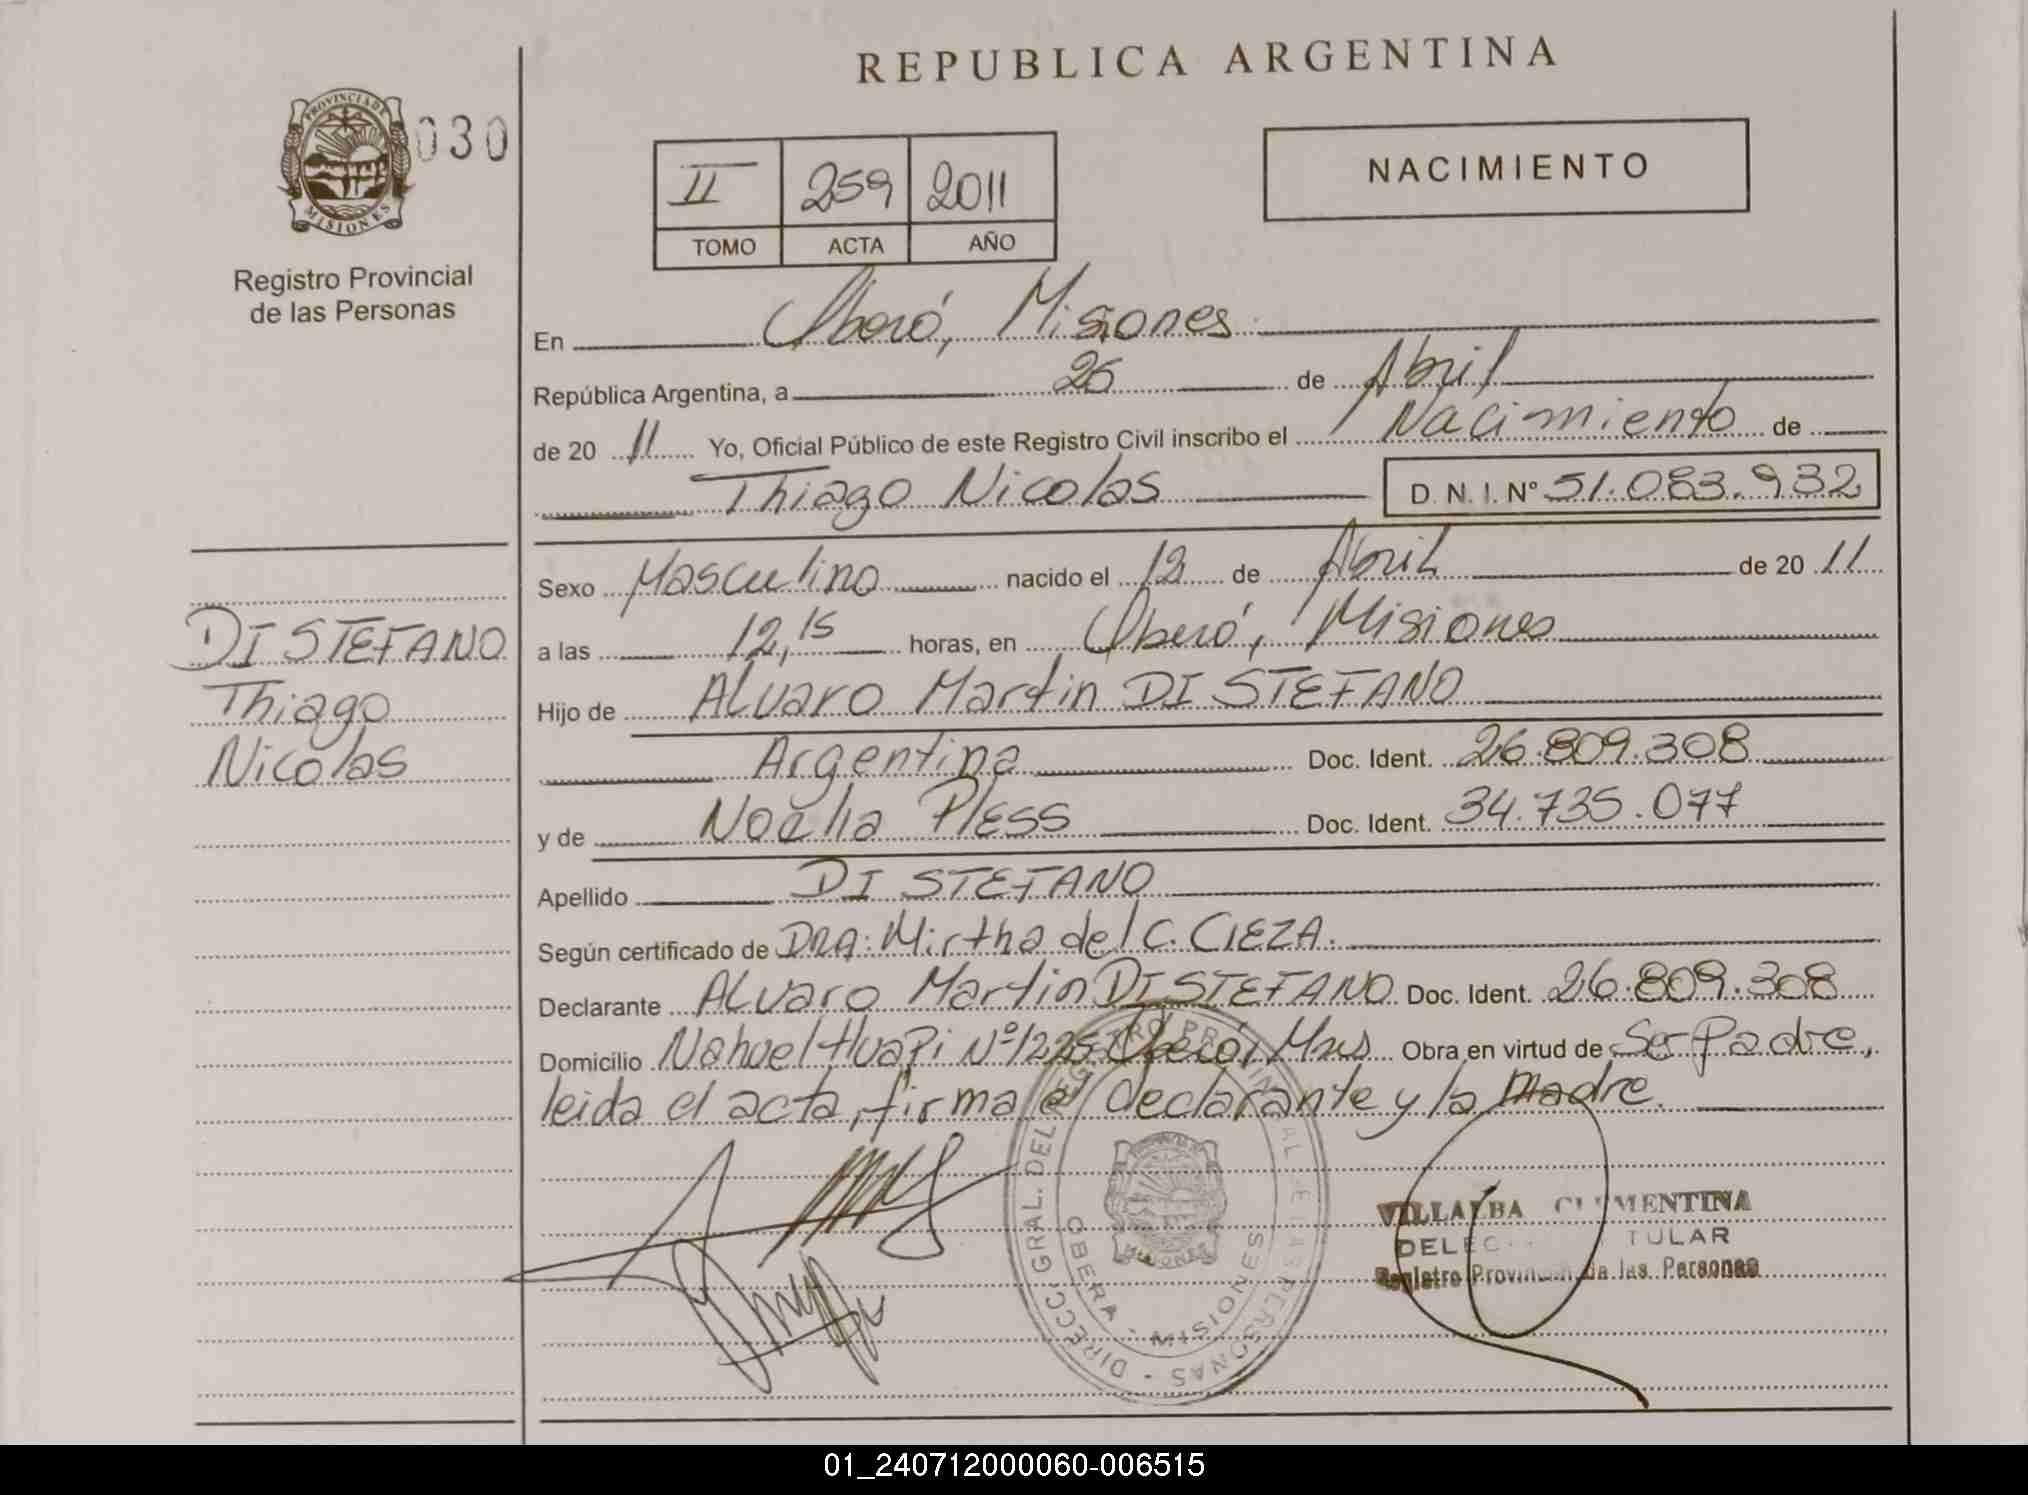 REPUBLICA ARGENTINA
PROVINCIA DE MISIONES
030
Registro Provincial
de las Personas
II 259 2011
TOMO ACTA AÑO
NACIMIENTO
En Oberá, Misiones
República Argentina, a 26 de Abril
de 20 11 Yo, Oficial Público de este Registro Civil inscribo el Nacimiento de
Thiago Nicolas D.N.I. Nº 51.083.932
DI STEFANO
Thiago
Nicolas
Sexo Masculino nacido el 12 de Abril de 20 11
a las 12,15 horas, en Oberá, Misiones
Hijo de Alvaro Martin DI STEFANO
Argentina Doc. Ident. 26.809.308
y de Noelia Pless Doc. Ident. 34.735.077
Apellido DI STEFANO
Según certificado de DRA: Mirtha del C. CIEZA.
Declarante Alvaro Martin DI STEFANO Doc. Ident. 26.809.308
Domicilio Nahuel Huapi Nº 1225 Oberá, Mnes Obra en virtud de Ser Padre,
leida el acta, firma el declarante y la Madre.
DIRECC. GRAL. DEL REGISTRO PROVINCIAL DE LAS PERSONAS
OBERA - MISIONES
VILLALBA CLEMENTINA
TULAR
Registro Provincial de las Personas
01_240712000060-006515